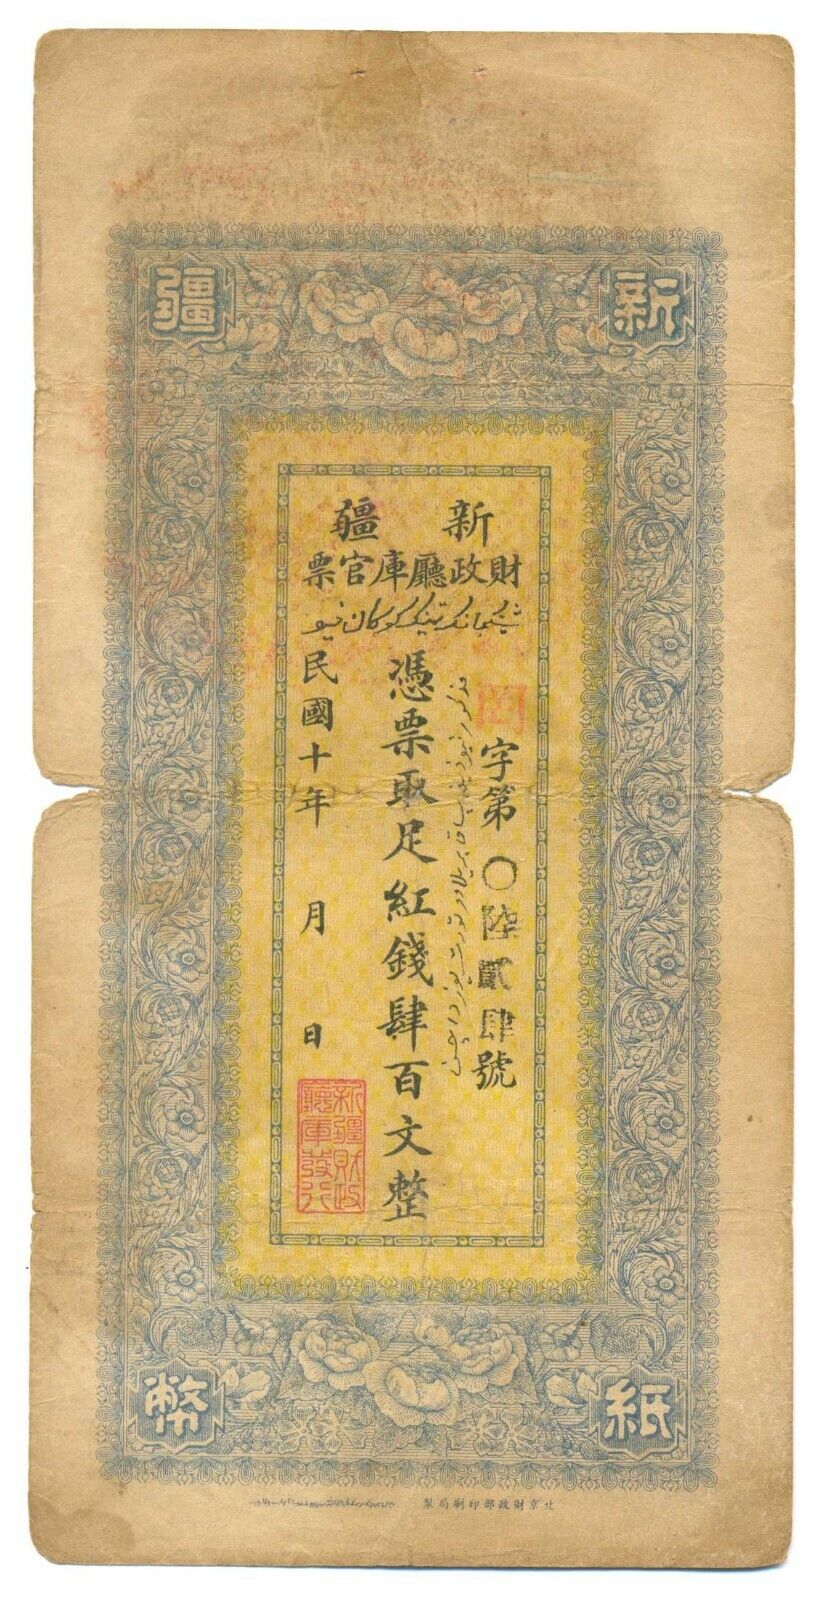 新疆
紙幣
新疆
財政廳庫官票
字第〇陸貳肆號
憑票取足紅錢肆百文整
民國十年 月 日
新疆財政
廳庫發行
北京財政部印刷局製